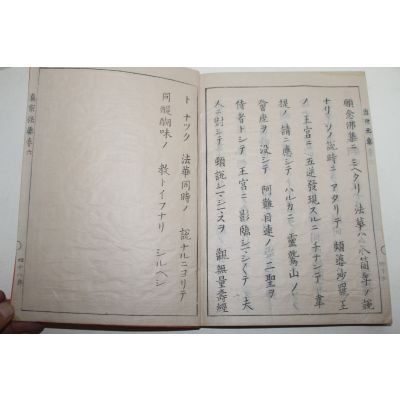 願念佛集ニミヘタリ 法華ハ八箇年ノ説
ナリ ソノ説時ニ アタリテ 頻婆娑羅王
ノ 王宮ニ 五逆發現スルニ チナンテ 韋
提ノ 請ニ應シテ ハルカニ 靈鷲山ノ
會座ヲ 没シテ 阿難目連ノ 二聖ヲ
侍者トシテ 王宮ニ 影臨シマシ〱テ 夫
人ニ對シテ 頓説シマシマスヲ 觀無量壽經
ト ナツク 法華同時ノ 説ナルニヨリテ
同醍醐味ノ 教トイフナリ シルヘシ